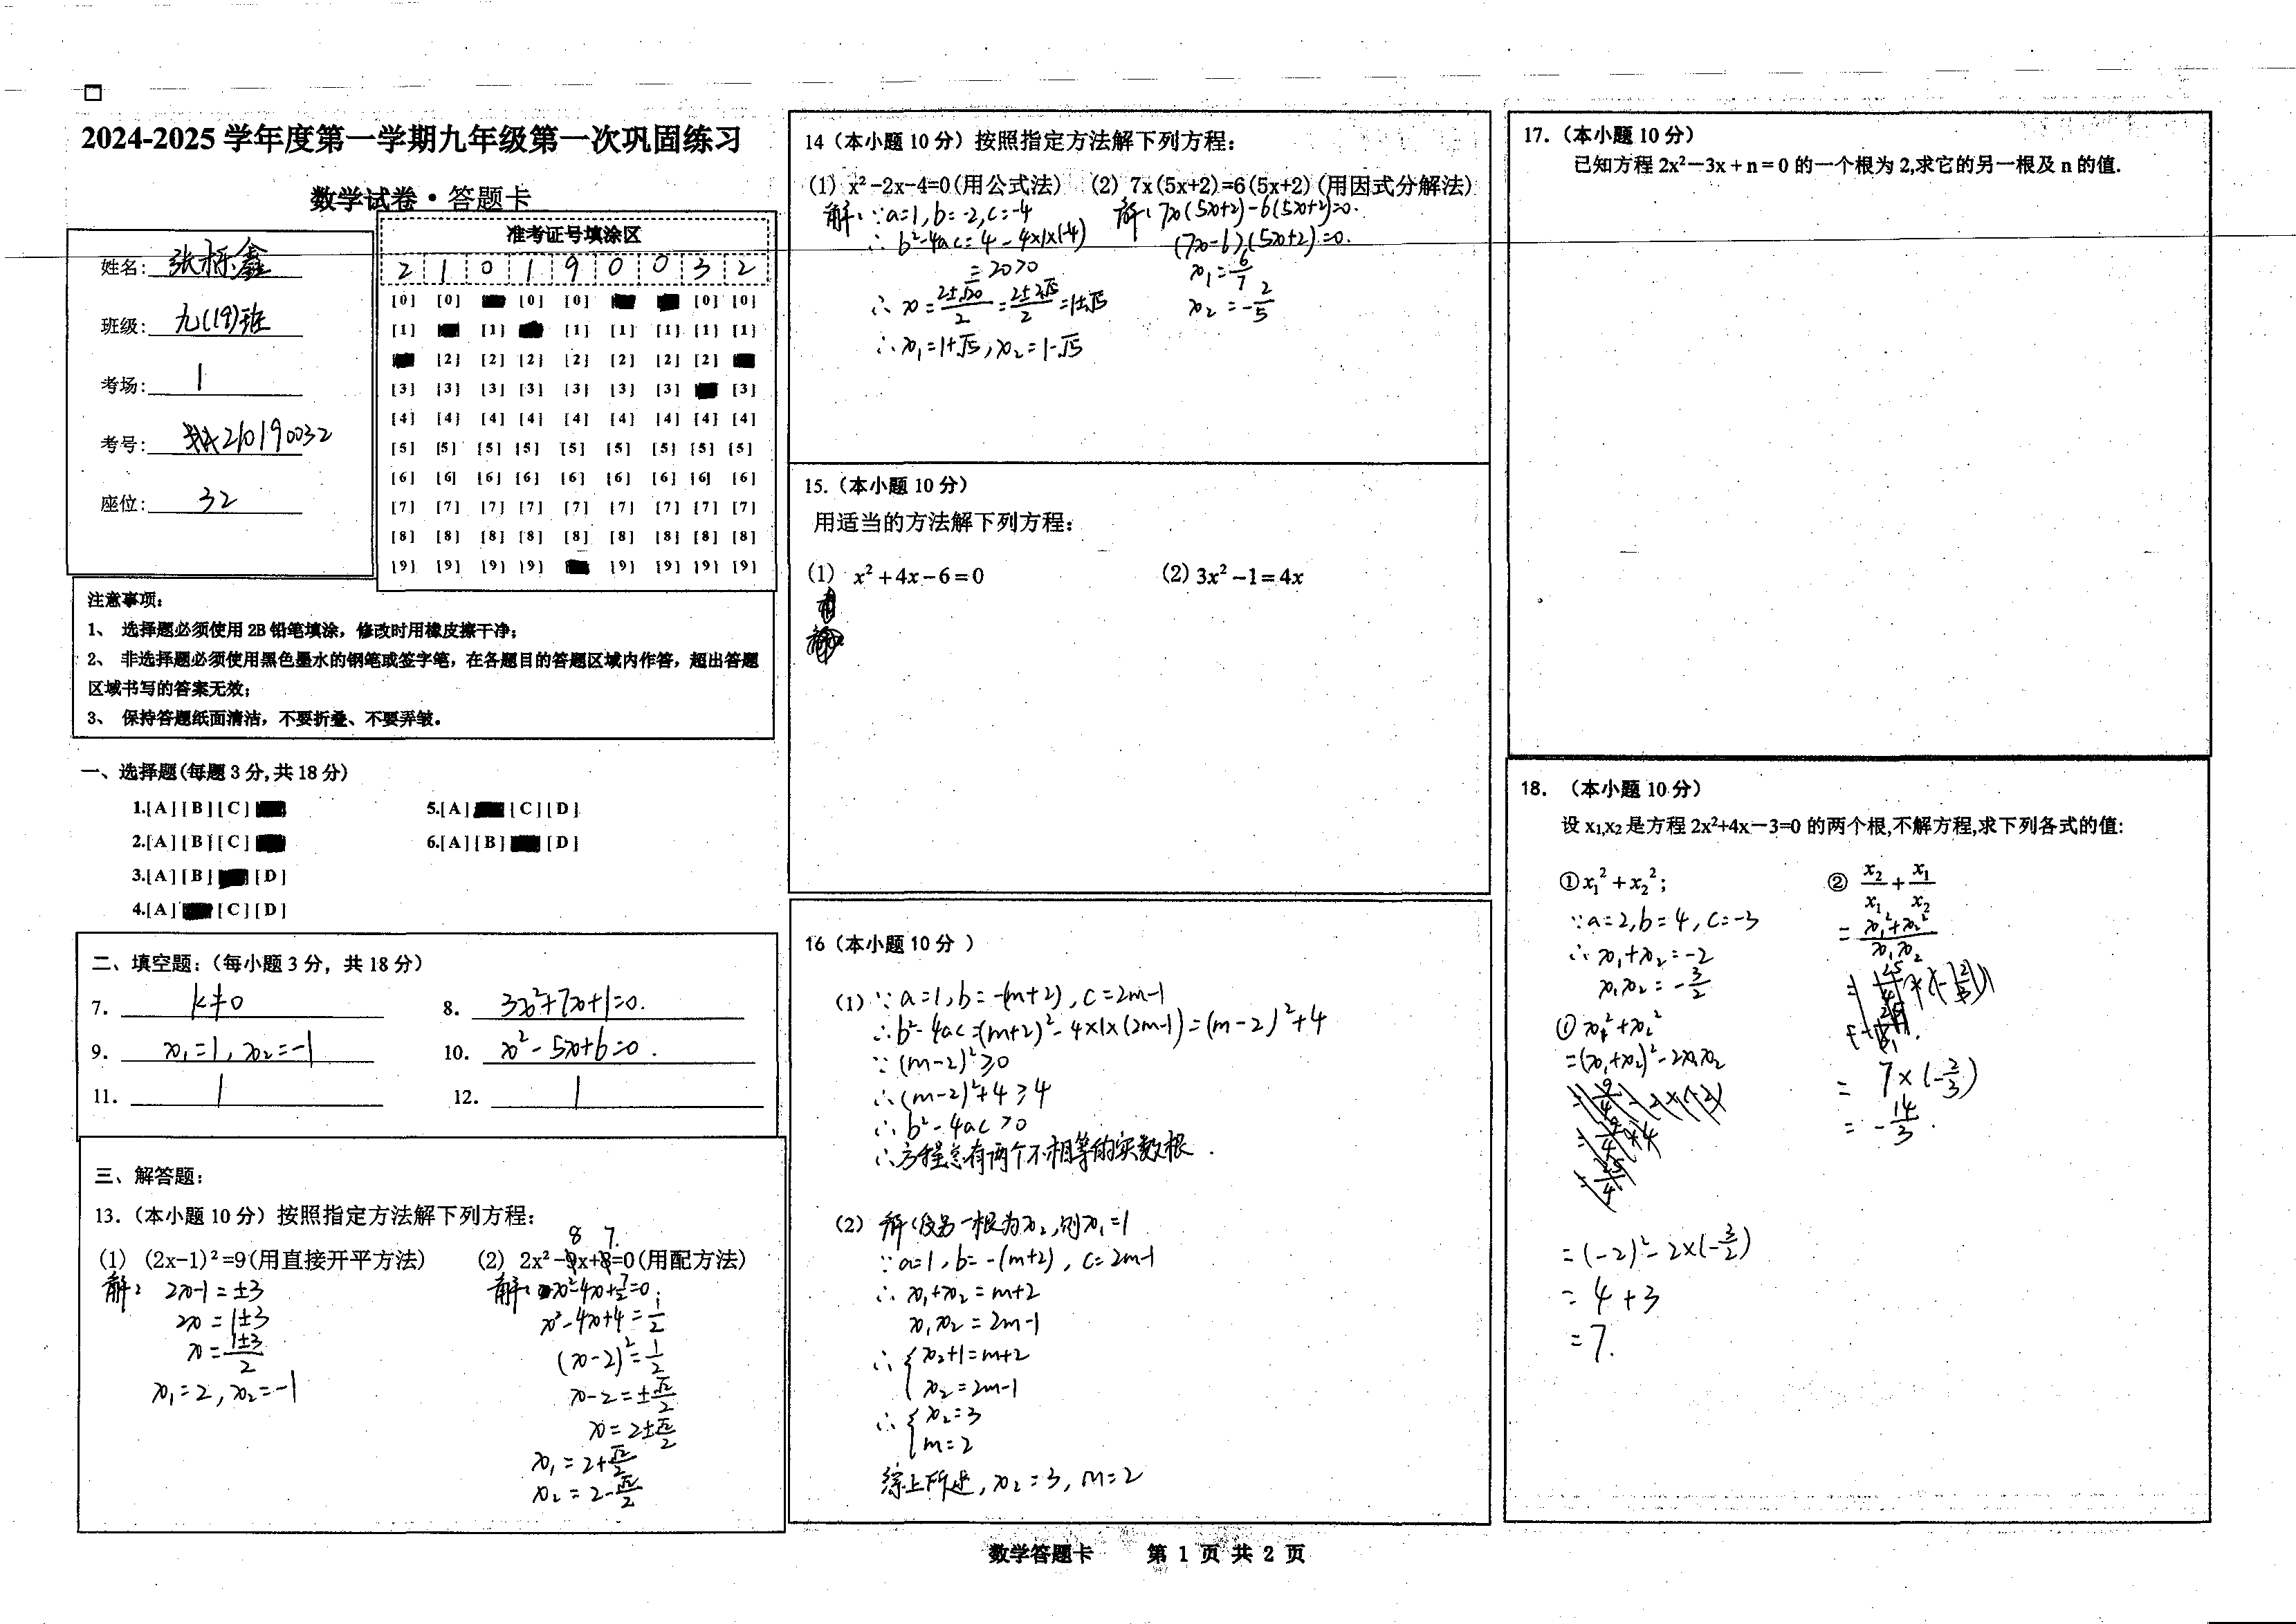 2024-2025 学年度第一学期九年级第一次巩固练习
数学试卷·答题卡
姓名: 张栎鑫
班级: 九(19)班
考场: 1
考号: 210190032
座位: 32
准考证号填涂区
2 1 0 1 9 0 0 3 2
[0] [0] [0] [0] [0] [0]
[1] [1] [1] [1] [1] [1] [1]
[2] [2] [2] [2] [2] [2] [2]
[3] [3] [3] [3] [3] [3] [3] [3]
[4] [4] [4] [4] [4] [4] [4] [4] [4]
[5] [5] [5] [5] [5] [5] [5] [5] [5]
[6] [6] [6] [6] [6] [6] [6] [6] [6]
[7] [7] [7] [7] [7] [7] [7] [7] [7]
[8] [8] [8] [8] [8] [8] [8] [8] [8]
[9] [9] [9] [9] [9] [9] [9] [9]
注意事项:
1、 选择题必须使用 2B 铅笔填涂，修改时用橡皮擦干净;
2、 非选择题必须使用黑色墨水的钢笔或签字笔，在各题目的答题区域内作答，超出答题
区域书写的答案无效;
3、 保持答题纸面清洁，不要折叠、不要弄皱。
一、选择题(每题 3 分,共 18 分)
1.[A][B][C]
2.[A][B][C]
3.[A][B] [D]
4.[A] [C][D]
5.[A] [C][D]
6.[A][B] [D]
二、填空题:（每小题 3 分，共 18 分）
7. k≠0
8. 3x²+7x+1=0.
9. x₁=1, x₂=-1
10. x²-5x+6=0.
11. 1
12. 1
三、解答题:
13.（本小题 10 分）按照指定方法解下列方程:
(1) (2x-1)²=9(用直接开平方法)
解: 2x-1=±3
2x=1±3
x=(1±3)/2
x₁=2, x₂=-1
8 7
(2) 2x²-9x+8=0(用配方法)
解: x²-4x+7/2=0
x²-4x+4=1/2
(x-2)²=1/2
x-2=±√2/2
x=2±√2/2
x₁=2+√2/2
x₂=2-√2/2
14（本小题 10 分）按照指定方法解下列方程:
(1) x²-2x-4=0(用公式法)
解: ∵a=1, b=-2, c=-4
∴b²-4ac=4-4×1×(-4)
=20>0
∴x=(2±√20)/2=(2±2√5)/2=1±√5
∴x₁=1+√5, x₂=1-√5
(2) 7x(5x+2)=6(5x+2)(用因式分解法)
解: 7x(5x+2)-6(5x+2)=0.
(7x-6)(5x+2)=0.
x₁=6/7
x₂=-2/5
15.（本小题 10 分）
用适当的方法解下列方程:
(1) x²+4x-6=0
(2) 3x²-1=4x
16（本小题 10 分 ）
(1) ∵a=1, b=-(m+2), c=2m-1
∴b²-4ac=(m+2)²-4×1×(2m-1)=(m-2)²+4
∵(m-2)²≥0
∴(m-2)²+4≥4
∴b²-4ac>0
∴方程总有两个不相等的实数根.
(2) 解:设另一根为x₂,则x₁=1
∵a=1, b=-(m+2), c=2m-1
∴x₁+x₂=m+2
x₁x₂=2m-1
∴{x₂+1=m+2
x₂=2m-1
∴{x₂=3
m=2
综上所述, x₂=3, m=2
17.（本小题 10 分）
已知方程 2x²-3x+n=0 的一个根为 2,求它的另一根及 n 的值.
18. （本小题 10 分）
设 x₁,x₂ 是方程 2x²+4x-3=0 的两个根,不解方程,求下列各式的值:
①x₁²+x₂²;
∵a=2, b=4, c=-3
∴x₁+x₂=-2
x₁x₂=-3/2
① x₁²+x₂²
=(x₁+x₂)²-2x₁x₂
=(-2)²-2×(-3/2)
=4+3
=7.
② x₂/x₁+x₁/x₂
=(x₁²+x₂²)/(x₁x₂)
=7×(-2/3)
=-14/3.
数学答题卡 第 1 页 共 2 页